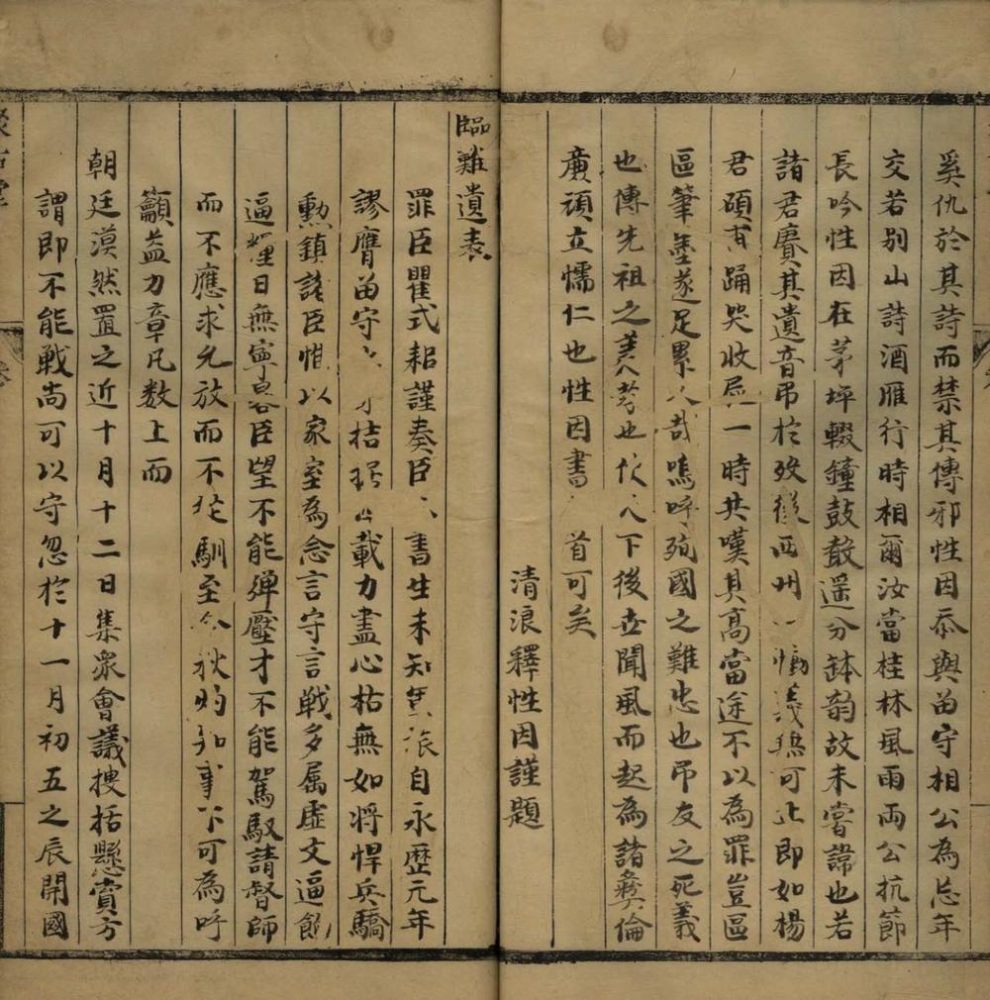 奚仇於其詩而禁其傳邪性因忝與留守相公為忘年
交若別山詩酒雁行時相爾汝當桂林風雨兩公抗節
長吟性因在茅坪輟鐘鼓敲遥分缽韵故未嘗諱也若
諸君賡其遺音吊於歿後西州慟義猶可止即如楊
君碩甫踊哭收屍一時共嘆其高當途不以為罪豈區
區筆墨遂足累人哉嗚呼殉國之難忠也吊友之死義
也傳先祖之美孝也使天下後世聞風而起為諸彝倫
廉頑立懦仁也性因書首可矣
清浪釋性因謹題
臨難遺表
罪臣瞿式耜謹奏臣書生未知軍旅自永歷元年
謬膺留守拮据載力盡心枯無如將悍兵驕
勳鎮諸臣惟以家室為念言守言戰多属虛文逼餉
逼糧日無寧晷臣望不能彈壓才不能駕馭請督師
而不應求允放而不從馴至今秋灼知事不可為呼
籲益力章凡数上而
朝廷漠然置之近十月十二日集衆會議搜括懸賞方
謂即不能戰尚可以守忽於十一月初五之辰開國